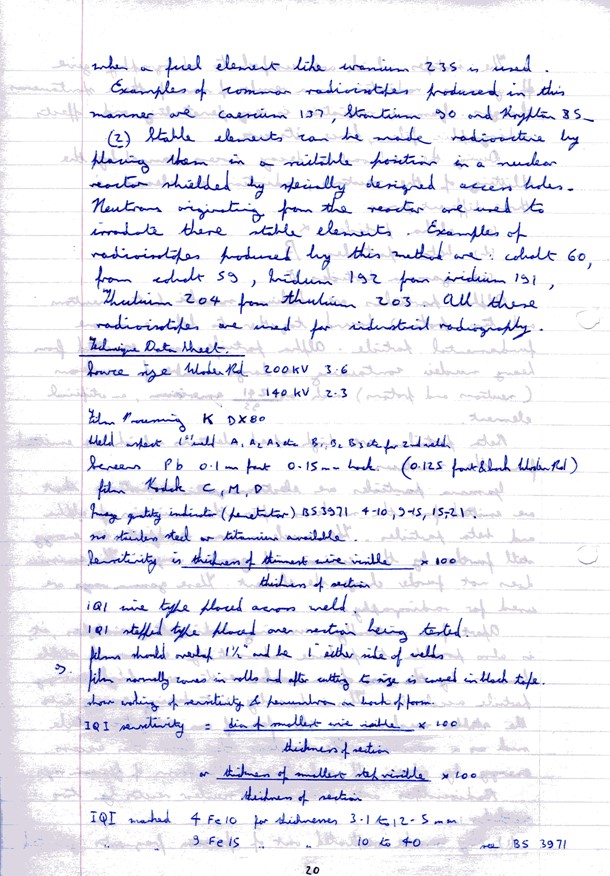 when a fuel element like uranium 235 is used.
Examples of common radioisotopes produced in this
manner are caesium 137, Strontium 90 and Krypton 85-
(2) Stable elements can be made radioactive by
placing them in a suitable position in a nuclear
reactor shielded by specially designed access holes.
Neutrons originating from the reactor are used to
irradiate these stable elements. Examples of
radioisotopes produced by this method are: cobalt 60,
from cobalt 59, Iridium 192 from iridium 191,
Thulium 204 from thulium 203. All these
radioisotopes are used for industrial radiography.
Technique Data Sheet.
Source size Woden Rd 200 KV 3.6
140 KV 2.3
Film Processing K DX80
Weld aspect 1st weld A1 A2 A3 etc B1 B2 B3 etc for 2nd weld.
Screens Pb 0.1 mm front 0.15 mm back (0.125 front & back Woden Rd)
film Kodak C, M, D
Image quality indicator (penetrator) BS 3971 4-10, 9-15, 15-21.
no stainless steel or titanium available.
Sensitivity is thickness of thinnest wire visible × 100
thickness of section
IQI wire type placed across weld.
IQI stepped type placed over section being tested.
films should overlap 1½" and be 1" either side of welds
film normally comes in rolls and after cutting to size is covered in black tape.
show working of sensitivity & penumbra on back of form.
IQI sensitivity = dia of smallest wire visible × 100
thickness of section
or thickness of smallest step visible × 100
thickness of section
IQI marked 4 Fe 10 for thicknesses 3.1 to 12.5 mm
" 9 Fe 15 " " 10 to 40 see BS 3971
20